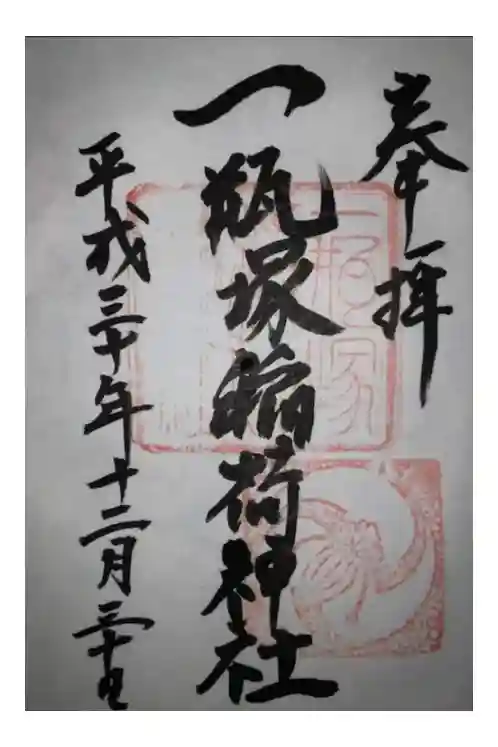 奉拝
一瓶塚稲荷神社
平成三十年十二月三十日